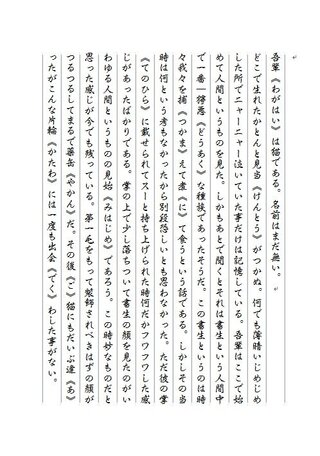 吾輩《わがはい》は猫である。名前はまだ無い。
どこで生れたかとんと見当《けんとう》がつかぬ。何でも薄暗いじめじめ
した所でニャーニャー泣いていた事だけは記憶している。吾輩はここで始
めて人間というものを見た。しかもあとで聞くとそれは書生という人間中
で一番獰悪《どうあく》な種族であったそうだ。この書生というのは時
々我々を捕《つかま》えて煮《に》て食うという話である。しかしその当
時は何という考もなかったから別段恐しいとも思わなかった。ただ彼の掌
《てのひら》に載せられてスーと持ち上げられた時何だかフワフワした感
じがあったばかりである。掌の上で少し落ちついて書生の顔を見たのがい
わゆる人間というものの見始《みはじめ》であろう。この時妙なものだと
思った感じが今でも残っている。第一毛をもって装飾されべきはずの顔が
つるつるしてまるで薬缶《やかん》だ。その後《ご》猫にもだいぶ逢《あ》
ったがこんな片輪《かたわ》には一度も出会《でく》わした事がない。